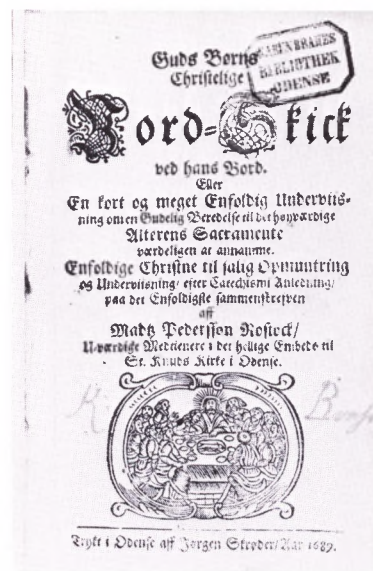 Guds Børns
KAREN BRAHES
BIBLIOTHEK
ODENSE
Christelige
Bord-Skick
ved hans Bord.
Eller
En kort og meget Enfoldig Underviis-
ning om en Gudelig Beredelse til det høyværdige
Alterens Sacramente
værdeligen at annamme.
Enfoldige Christne til salig Opmuntring
og Underviisning/ efter Catechismi Anledning/
paa det Enfoldigste sammenskreffven
aff
Madtz Pedersson Rostock/
Uværdige Medtienere i det hellige Embede til
St. Knuds Kirke i Odense.
Trykt i Odense aff Jørgen Skrøder/ Aar 1689.